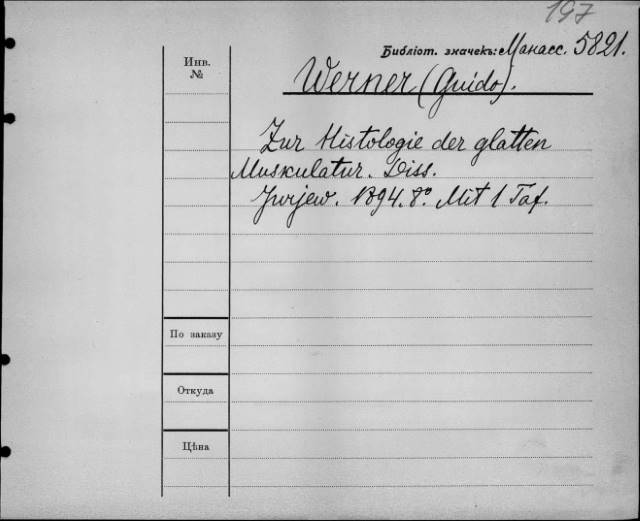 197
Библіот. значекъ: Манасс. 5821.
Инв.
№
Werner (Guido).
Zur Histologie der glatten
Muskulatur. Diss.
Jurjew. 1894. 8°. Mit 1 Taf.
По заказу
Откуда
Цѣна